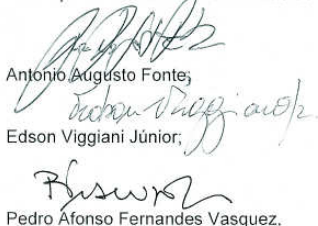 Antonio Augusto Fonte;
Edson Viggiani Jr.
Edson Viggiani Júnior;
Pedro Afonso Fernandes Vasquez,